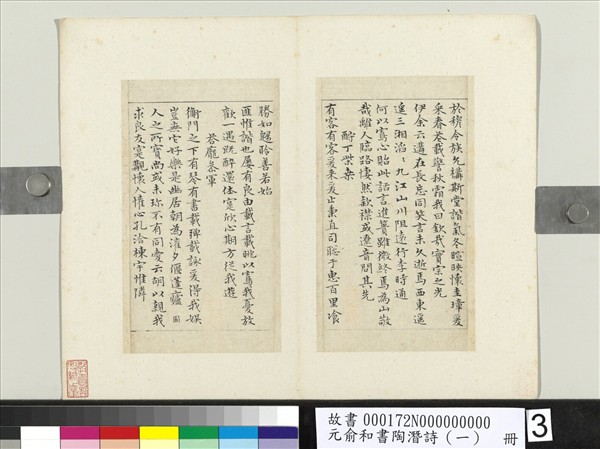 於穆令族允構斯堂諧氣冬暄映懷圭璋爰
采春花載警秋霜我曰欽哉實宗之光
伊余云遘在長忘同笑言未久逝焉西東遙
遙三湘滔〻九江山川阻遠行李時通
何以寫心貽此話言進簣雖微終焉為山敬
哉離人臨路悽然款襟或遼音問其先
酬丁柴桑
有客有客爰來爰止秉直司聡于惠百里飡
勝如歸聆善若始
匪惟諧也屢有良由載言載眺以寫我憂放
歡一遇既醉還休寔欣心期方從我遊
答龐參軍
衡門之下有琴有書載彈載詠爰得我娛
豈無它好樂是幽居朝為灌夕偃蓬廬 園
人之所寶尚或未珎不有同愛云胡以親我
求良友寔覯懷人懽心孔洽棟宇惟隣
故書000172N000000000
元俞和書陶潛詩(一) 冊
3